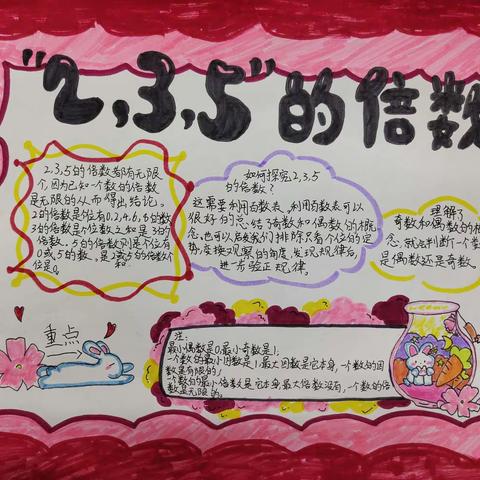 "2,3,5"的倍数
2,3,5的倍数都有无限
个,因为已知一个数的倍数
是无限的从而得出结论。
2的倍数是位有0.2,4,6,8的数
3的倍数是个位数之和是3的
倍数。5的倍数则是个位有
0或5的数。是2或5的倍数个
位是0。
如何探究2,3,5
的倍数?
这需要利用百数表,利用百数表可以
很好的总结了奇数和偶数的概
念,也可以启发我们排除只看个位的定
势,变换观察的角度,发现规律后,
进一步验正规律。
理解了
奇数和偶数的概
念,就先判断一个数
是偶数还是奇数。
重点
注:
最小偶数是0,最小奇数是1,
一个数的最小因数是1,最大因数是它本身,一个数的因
数是有限的,
一个数的最小倍数是它本身,最大倍数没有,一个数的倍
数是无限的。